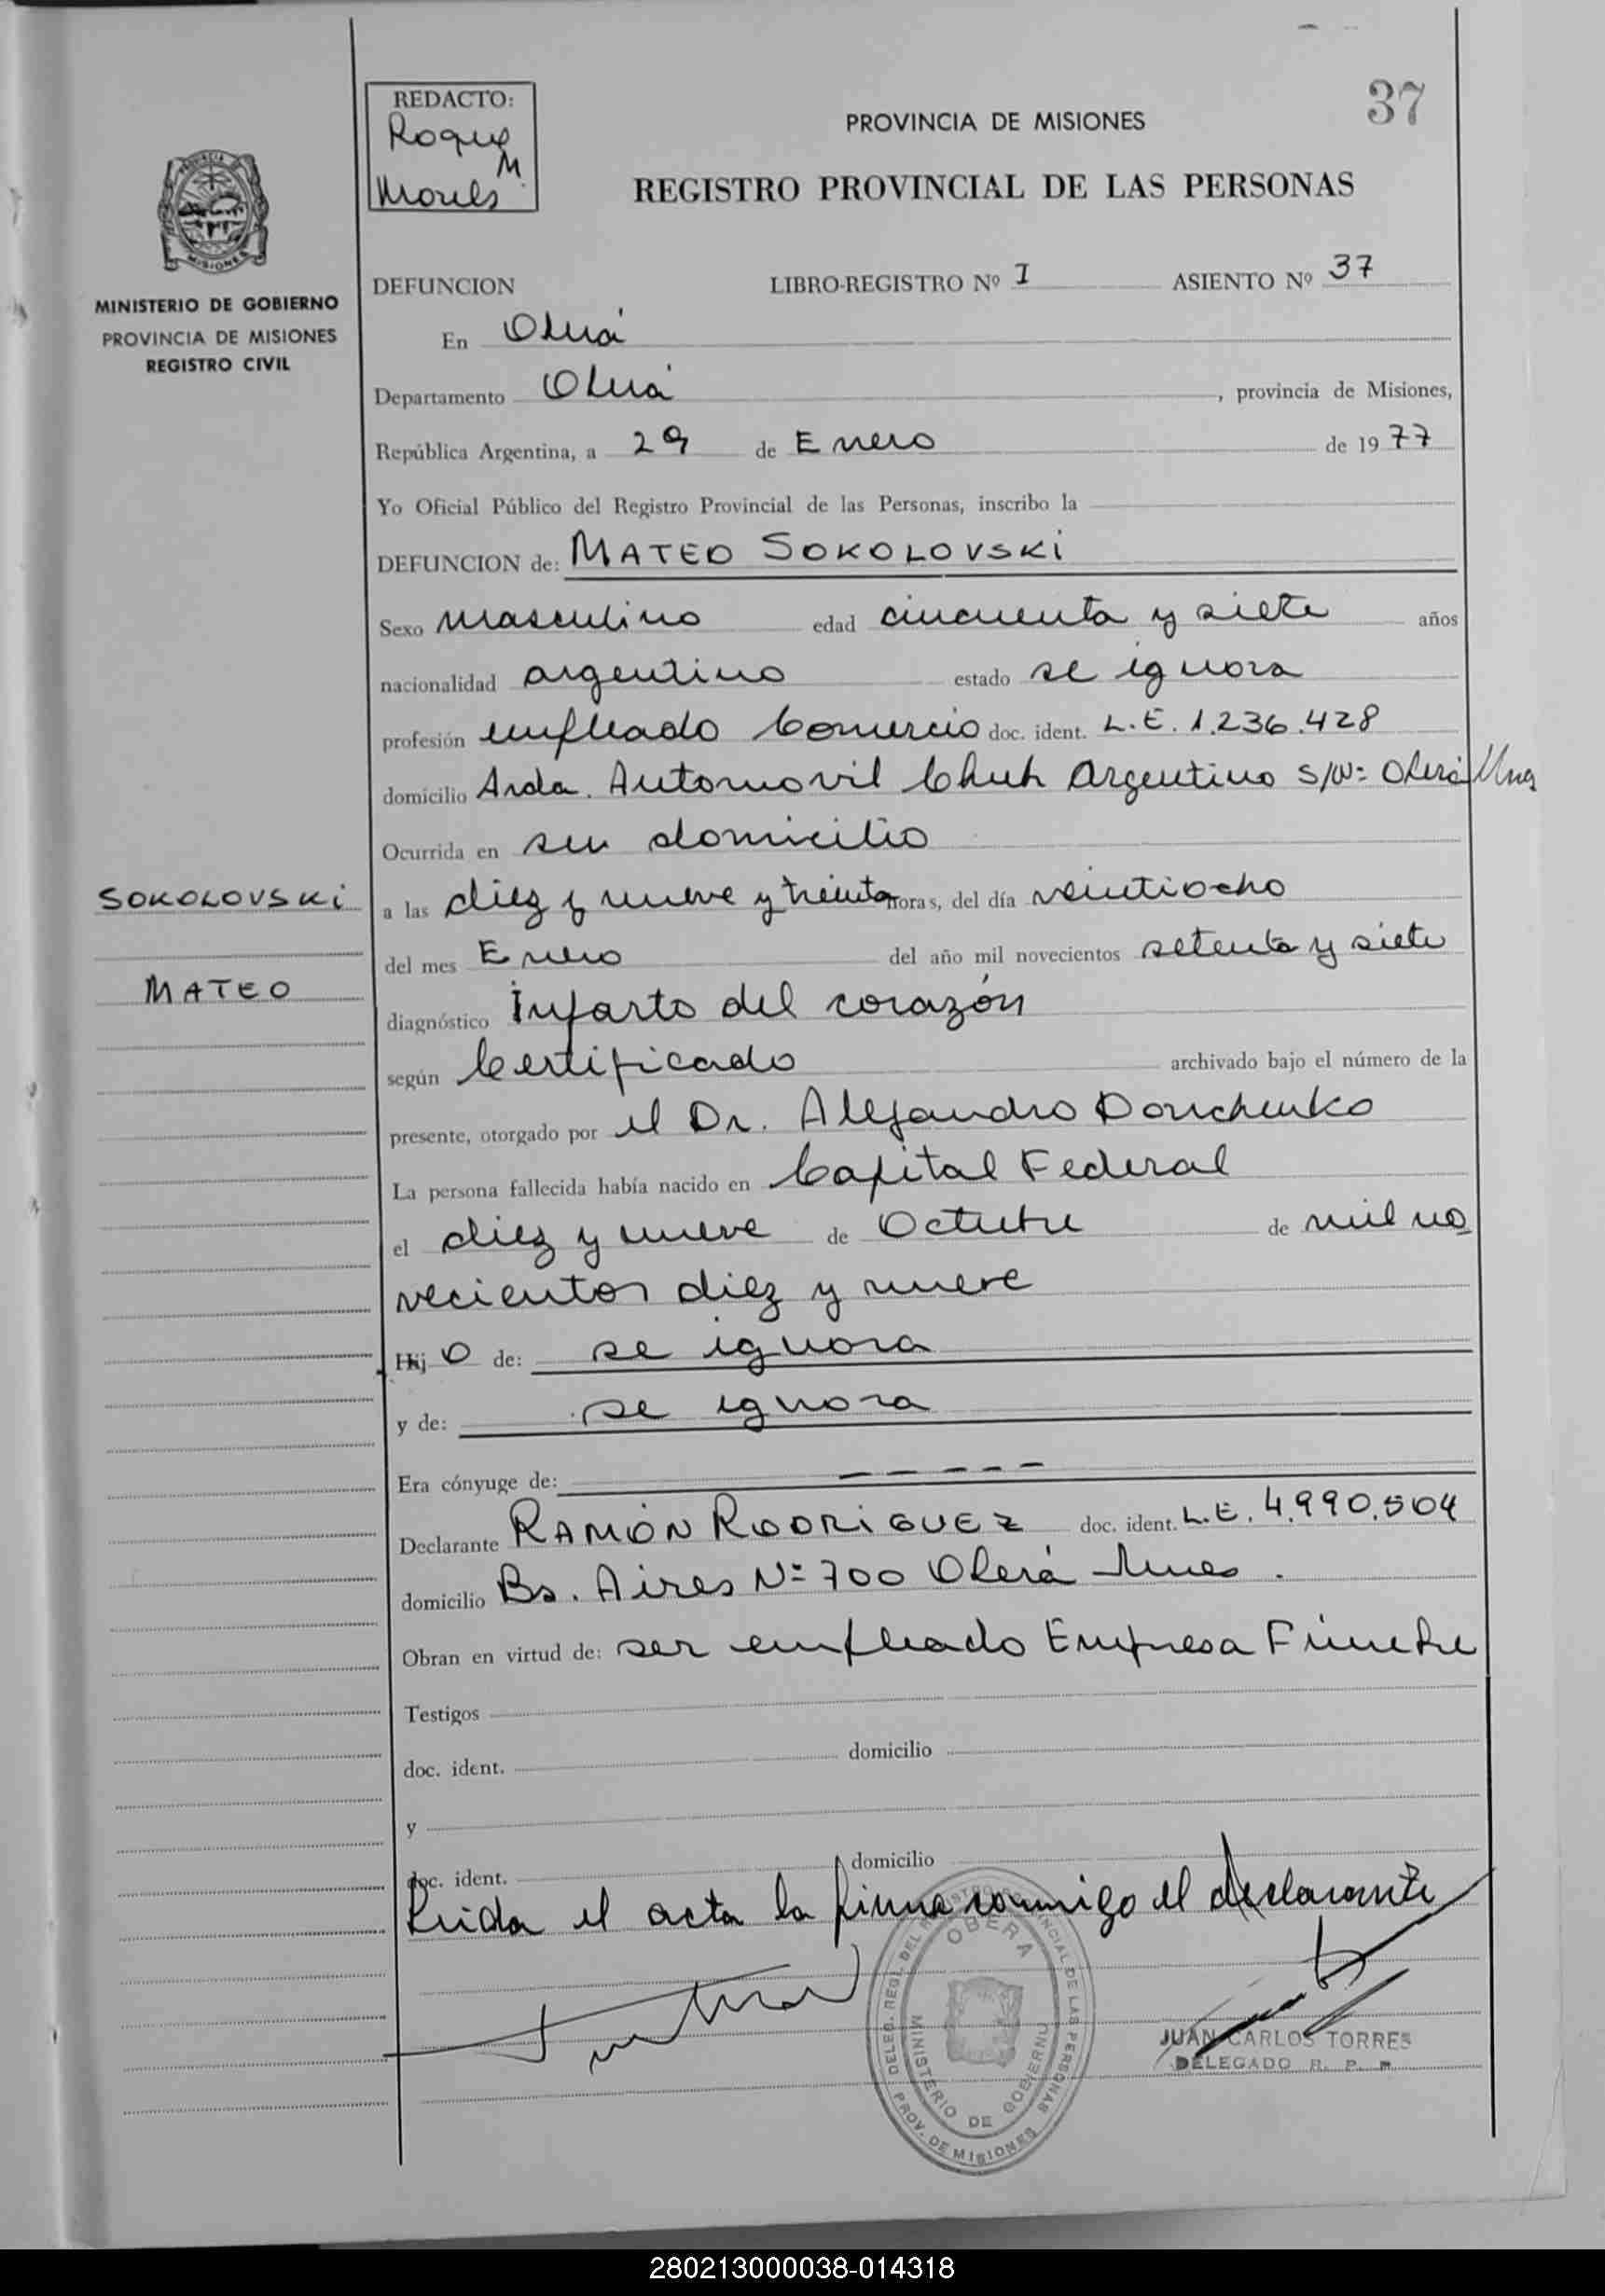 37
REDACTO:
Roque
M.
Morels
PROVINCIA DE MISIONES
REGISTRO PROVINCIAL DE LAS PERSONAS
MINISTERIO DE GOBIERNO
PROVINCIA DE MISIONES
REGISTRO CIVIL
DEFUNCION LIBRO-REGISTRO Nº I ASIENTO Nº 37
En Oberá
Departamento Oberá, provincia de Misiones,
República Argentina, a 29 de Enero de 1977
Yo Oficial Público del Registro Provincial de las Personas, inscribo la
DEFUNCION de: MATEO SOKOLOVSKI
Sexo masculino edad cincuenta y siete años
nacionalidad argentino estado se ignora
profesión empleado Comercio doc. ident. L.E. 1.236.428
domicilio Avda. Automovil Club Argentino S/Nº Oberá Mnes
Ocurrida en su domicilio
SOKOLOVSKI
MATEO
a las diez y nueve y treinta horas, del día veintiocho
del mes Enero del año mil novecientos setenta y siete
diagnóstico Infarto del corazón
según Certificado archivado bajo el número de la
presente, otorgado por el Dr. Alejandro Donchenko
La persona fallecida había nacido en Capital Federal
el diez y nueve de Octubre de mil no
vecientos diez y nueve
Hij o de: se ignora
y de: se ignora
Era cónyuge de: -----
Declarante RAMÓN RODRIGUEZ doc. ident. L.E. 4.990.504
domicilio Bs. Aires Nº 700 Oberá Mnes.
Obran en virtud de: ser empleado Empresa Fúnebre
Testigos
doc. ident. domicilio
y
doc. ident. domicilio
Leida el acta la firma conmigo el declarante
DELEG. REGL. DEL REGISTRO PROVINCIAL DE LAS PERSONAS
OBERA
MINISTERIO DE GOBIERNO
PROV. DE MISIONES
JUAN CARLOS TORRES
DELEGADO R. P. P.
280213000038-014318